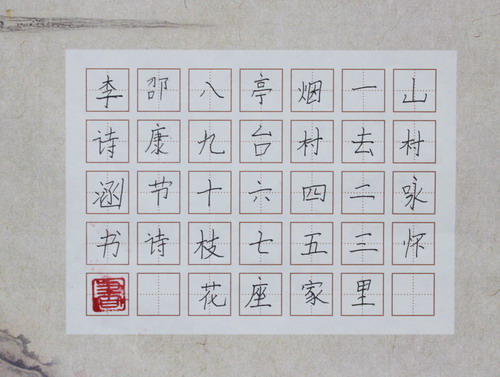 山村咏怀
一去二三里
烟村四五家
亭台六七座
八九十枝花
邵康节诗
李诗涵书